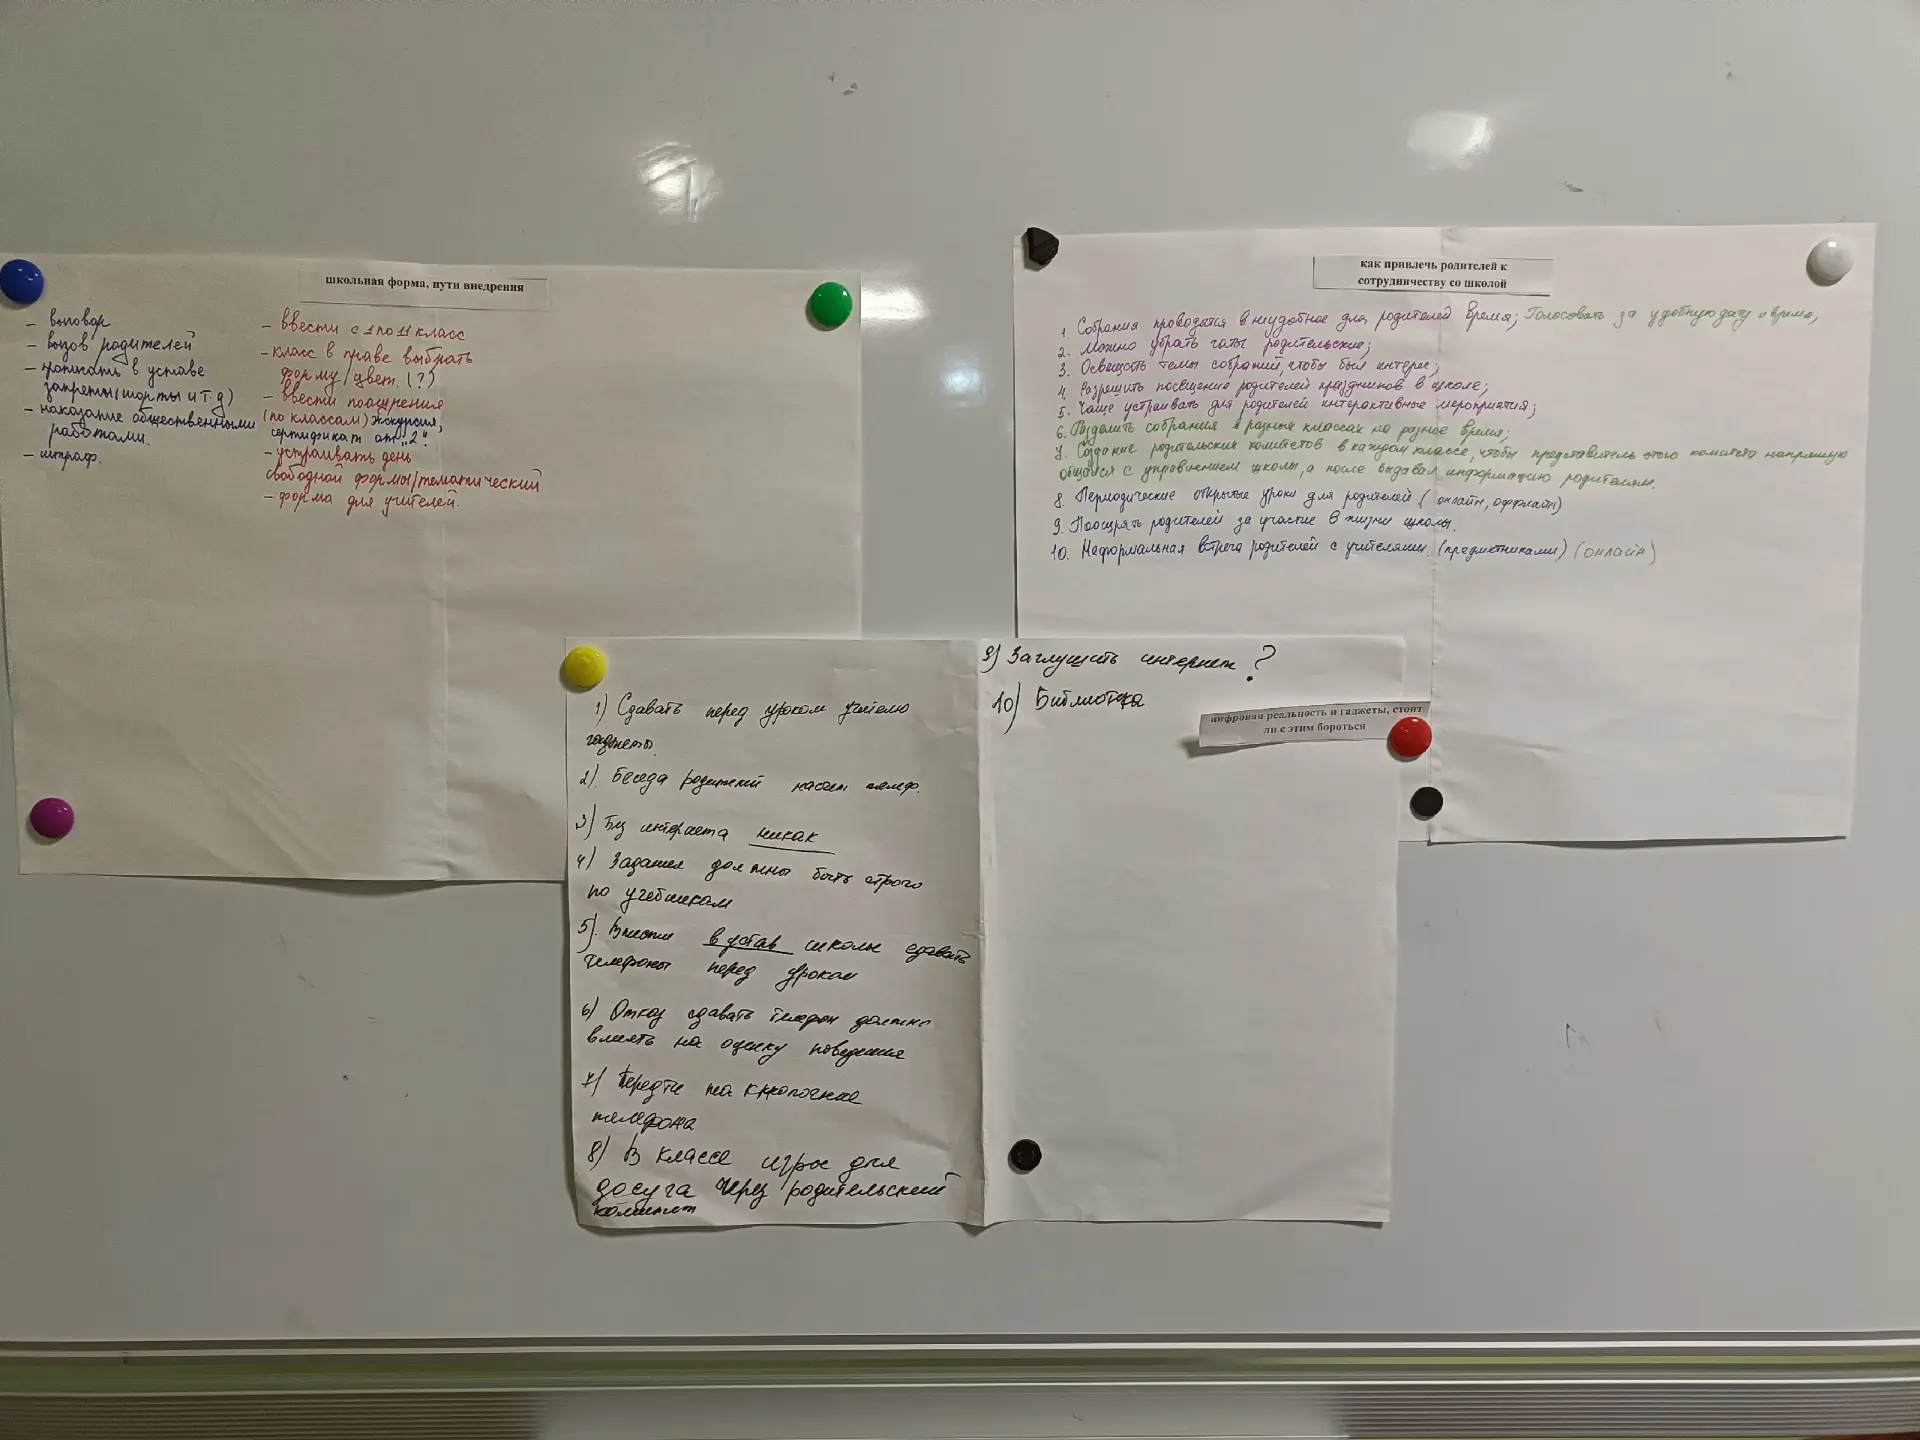 школьная форма, пути внедрения
– выговор
– вызов родителей
– прописать в уставе
запреты (шорты и т.д)
– наказание общественными
работами.
– штраф.
– ввести с 1 по 11 класс
– класс в праве выбрать
форму/цвет. (?)
– ввести поощрения
(по классам) экскурсия,
сертификат от „2“
– устраивать день
свободной формы/тематический
– форма для учителей.
как привлечь родителей к
сотрудничеству со школой
1. Собрания проводятся в неудобное для родителей время; Голосовать за удобную дату и время;
2. Можно убрать чаты родительские;
3. Освещать темы собраний, чтобы был интерес;
4. Разрешить посещение родителей праздников в школе;
5. Чаще устраивать для родителей интерактивные мероприятия;
6. Разделить собрания в разных классах на разное время;
7. Создание родительских комитетов в каждом классе, чтобы представитель этого комитета напрямую
общался с управлением школы, а после выдавал информацию родителям.
8. Периодические открытые уроки для родителей (онлайн, оффлайн)
9. Поощрять родителей за участие в жизни школы.
10. Неформальная встреча родителей с учителями. (предметниками) (онлайн)
1) Сдавать перед уроком учителю
гаджеты.
2). Беседа родителей насчет телеф.
3) Без интернета никак
4) Задания должны быть строго
по учебникам
5). Внести в устав школы сдавать
телефоны перед уроком
6) Отказ сдавать телефон должно
влиять на оценку поведения
7) Передти на кнопочные
телефона
8) В классе игры для
досуга через родительский
комитет
9) Заглушить интернет?
10) Библиотека
цифровая реальность и гаджеты, стоит
ли с этим бороться